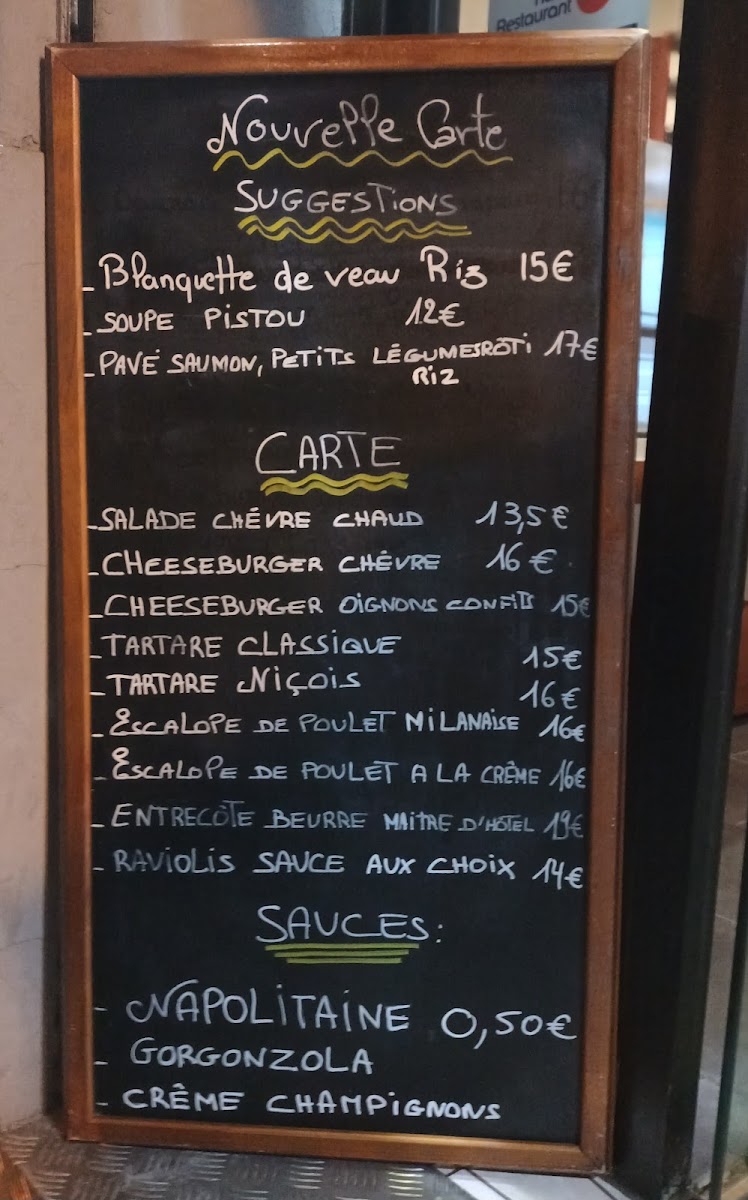 Restaurant
Nouvelle Carte
SUGGESTIONS
- Blanquette de veau Riz 15€
- SOUPE PISTOU 12€
- PAVÉ SAUMON, PETITS LÉGUMES RÔTI 17€
RIZ
CARTE
- SALADE CHÉVRE CHAUD 13,5€
- CHEESEBURGER CHÈVRE 16€
- CHEESEBURGER OIGNONS CONFITS 15€
- TARTARE CLASSIQUE 15€
- TARTARE NIÇOIS 16€
- ESCALOPE DE POULET MILANAISE 16€
- ESCALOPE DE POULET A LA CRÊME 16€
- ENTRECÔTE BEURRE MAITRE D'HÔTEL 19€
- RAVIOLIS SAUCE AUX CHOIX 14€
SAUCES:
- NAPOLITAINE 0,50€
- GORGONZOLA
- CRÊME CHAMPIGNONS